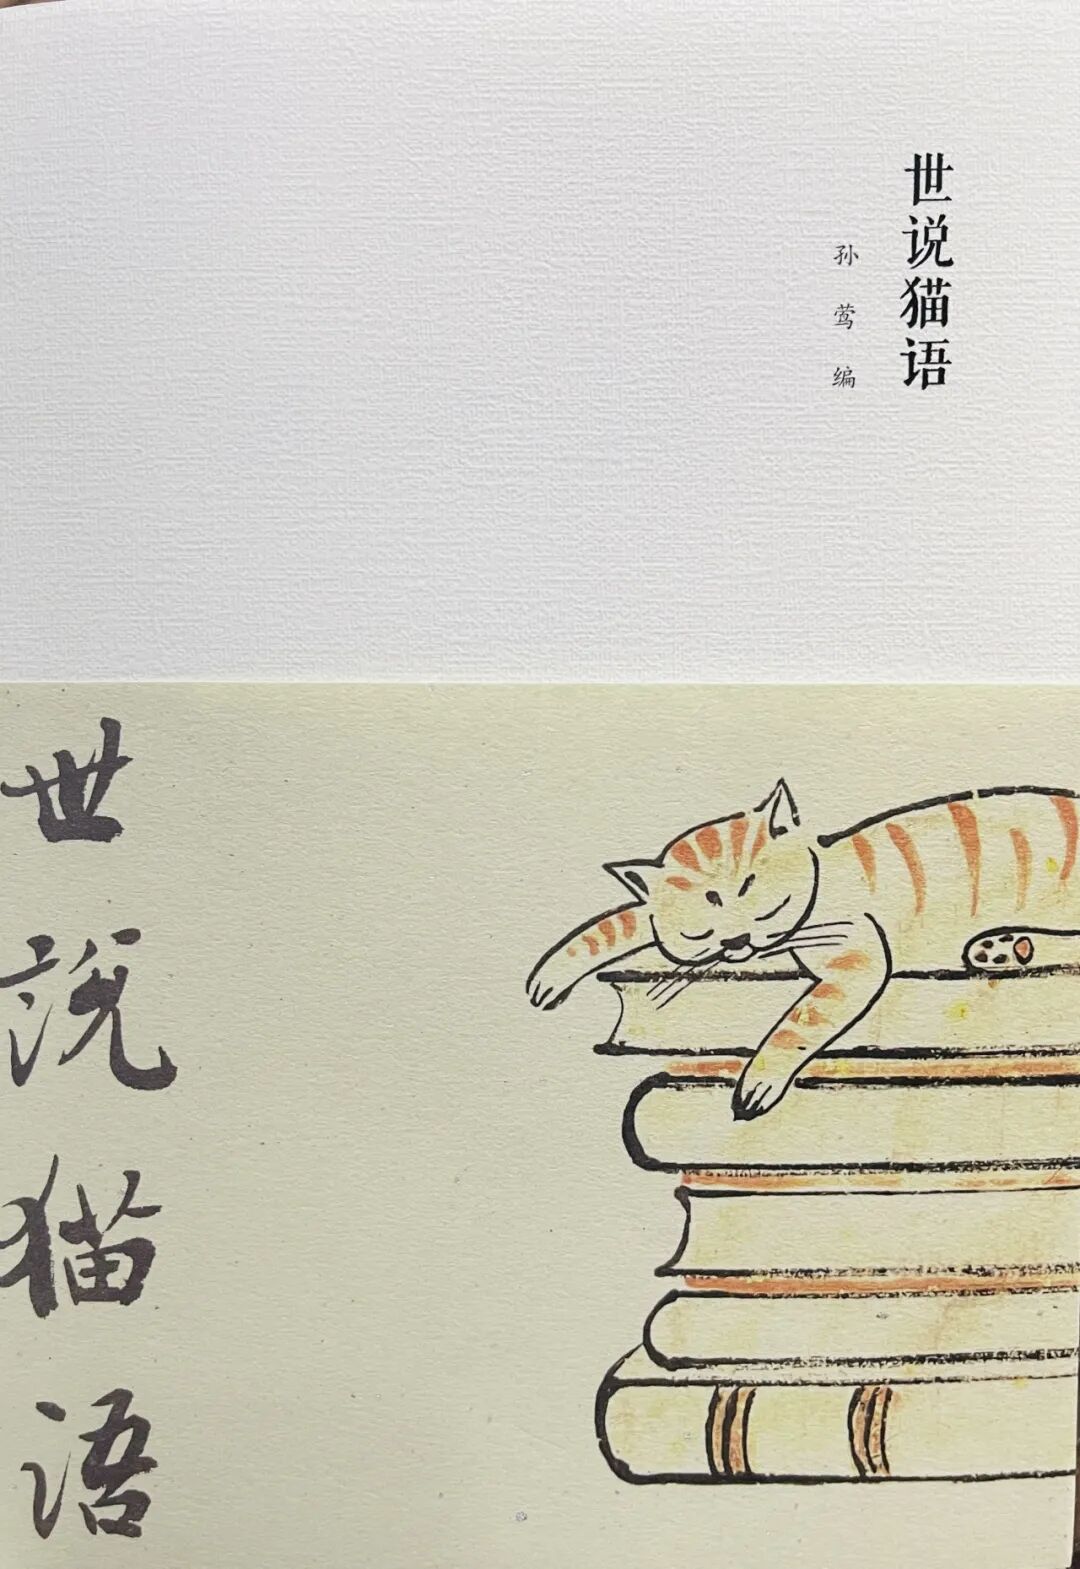 世说猫语
孙莺编
世说猫语